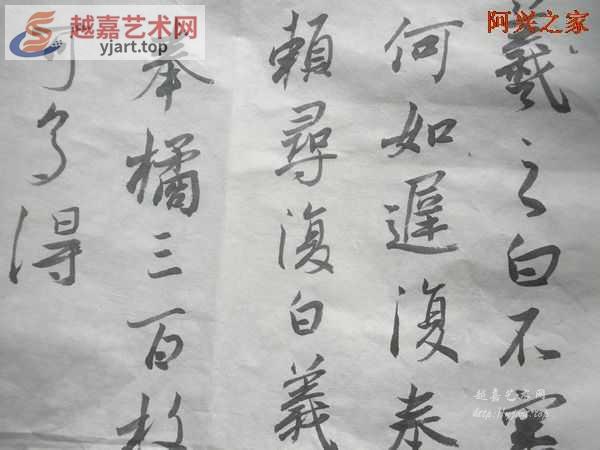 越嘉艺术网
yjart.top
阿兴之家
羲之白不審
何如遲復奉
頼尋復白羲
奉橘三百枚
可多得
越嘉艺术网
http://yjart.top